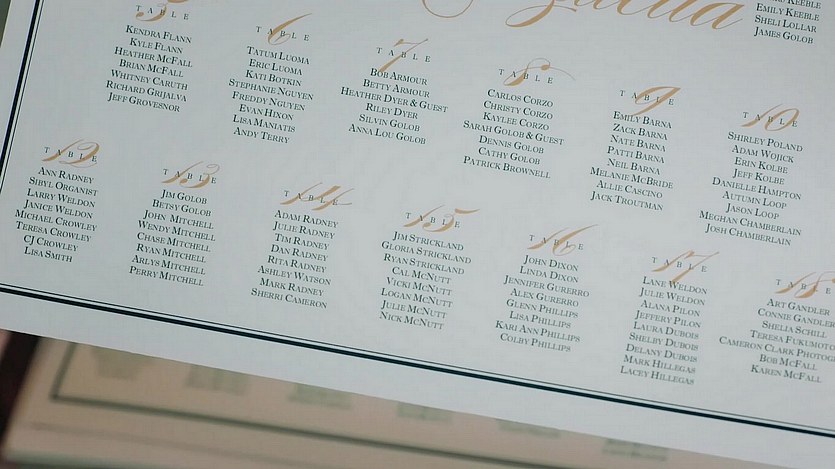 Emily Keeble
Sheli Lollar
James Golob
Table 5
Kendra Flann
Kyle Flann
Heather McFall
Brian McFall
Whitney Caruth
Richard Grijalva
Jeff Grovesnor
Table 6
Tatum Luoma
Eric Luoma
Kati Botkin
Stephanie Nguyen
Freddy Nguyen
Evan Hixon
Lisa Maniatis
Andy Terry
Table 7
Bob Armour
Betty Armour
Heather Dyer & Guest
Riley Dyer
Silvin Golob
Anna Lou Golob
Table 8
Carlos Corzo
Christy Corzo
Kaylee Corzo
Sarah Golob & Guest
Dennis Golob
Cathy Golob
Patrick Brownell
Table 9
Emily Barna
Zack Barna
Nate Barna
Patti Barna
Neil Barna
Melanie McBride
Allie Cascino
Jack Troutman
Table 10
Shirley Poland
Adam Wojick
Erin Kolbe
Jeff Kolbe
Danielle Hampton
Autumn Loop
Jason Loop
Meghan Chamberlain
Josh Chamberlain
Table 12
Ann Radney
Sibyl Organist
Larry Weldon
Janice Weldon
Michael Crowley
Teresa Crowley
CJ Crowley
Lisa Smith
Table 13
Jim Golob
Betsy Golob
John Mitchell
Wendy Mitchell
Chase Mitchell
Ryan Mitchell
Arlys Mitchell
Perry Mitchell
Table 14
Adam Radney
Julie Radney
Tim Radney
Dan Radney
Rita Radney
Ashley Watson
Mark Radney
Sherri Cameron
Table 15
Jim Strickland
Gloria Strickland
Ryan Strickland
Cal McNutt
Vicki McNutt
Logan McNutt
Julie McNutt
Nick McNutt
Table 16
John Dixon
Linda Dixon
Jennifer Gurerro
Alex Gurerro
Glenn Phillips
Lisa Phillips
Kari Ann Phillips
Colby Phillips
Table 17
Lane Weldon
Julie Weldon
Alana Pilon
Jeffery Pilon
Laura Dubois
Shelby Dubois
Delany Dubois
Mark Hillegas
Lacey Hillegas
Table 18
Art Gandler
Connie Gandle
Shelia Schill
Teresa Fukumoto
Cameron Clark Photog
Bob McFall
Karen McFall